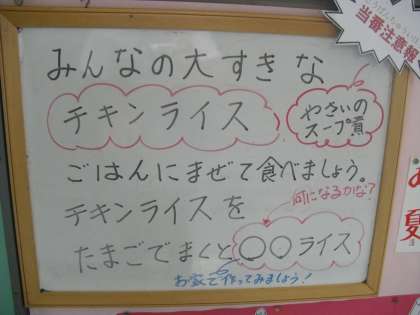 当番注意報
みんなの大すきな
チキンライス
やさいの
スープ煮
ごはんにまぜて食べましょう。
何になるかな?
チキンライスを
たまごでまくと○○ライス
お家で作ってみましょう!
夏